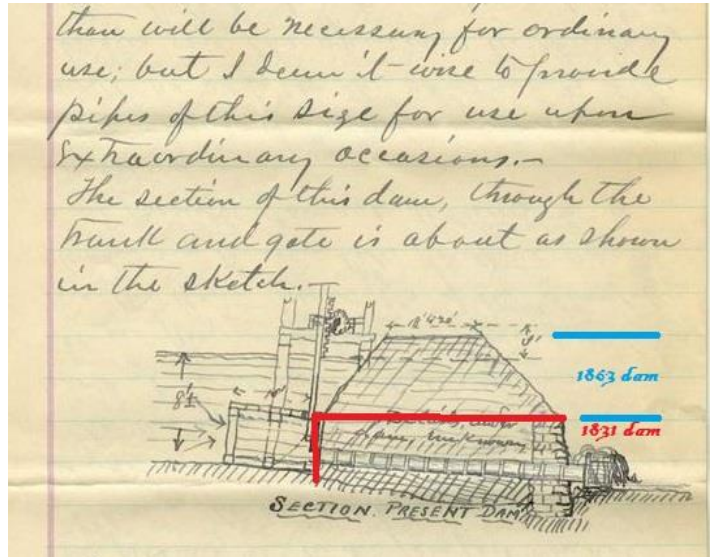 than will be necessary for ordinary
use; but I deem it wise to provide
pipes of this size for use upon
extraordinary occasions.—
The section of this dam, through the
trunk and gate is about as shown
in the sketch.—
1863 dam
1831 dam
8'±
10'
Details, under
pipe, unknown
SECTION. PRESENT DAM